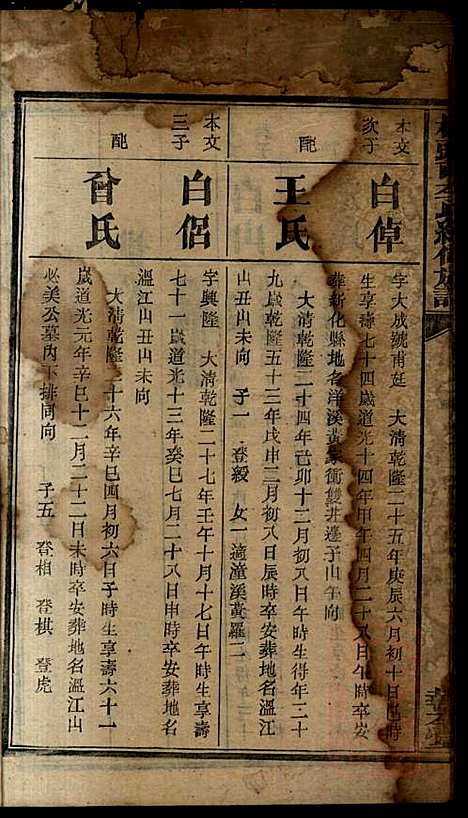 本文
次子
白倬
字大成號甫廷 大清乾隆二十五年庚辰六月初十日酉時
生享壽七十四歲道光十四年甲午四月二十八日午時卒安
葬新化縣地名洋溪黃家衝雙井邊子山午向
配
王氏
大清乾隆二十四年己卯十二月初八日午時生得年三十
九歲乾隆五十三年戊申三月初八日辰時卒安葬地名溫江
山丑山未向 子一 登毅 女一適潼溪黃羅二
本文
三子
白侶
字興隆 大清乾隆二十七年壬午十月十七日午時生享壽
七十一歲道光十三年癸巳七月二十八日申時卒安葬地名
溫江山丑山未向
配
曾氏
大清乾隆二十六年辛巳四月初六日子時生享壽六十一
歲道光元年辛巳十二月二十二日未時卒安葬地名溫江山
必美公墓內下排同向 子五 登相 登棋 登虎